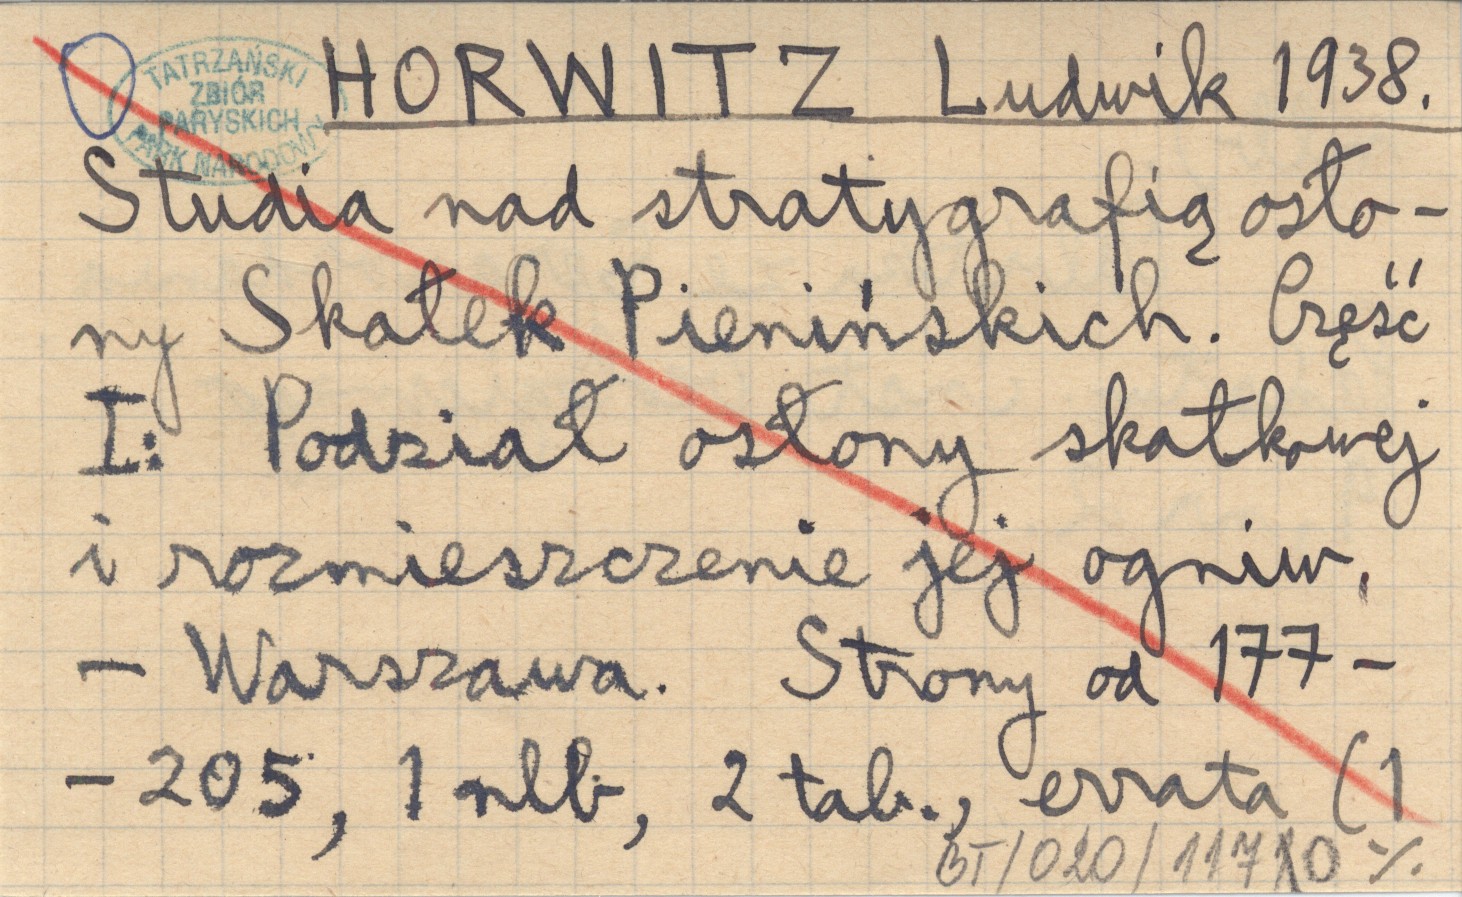 TATRZAŃSKI
ZBIÓR
PARYSKICH
PARK NARODOWY
HORWITZ Ludwik 1938.
Studia nad stratygrafią osło-
ny Skałek Pienińskich. Część
I: Podział osłony skałkowej
i rozmieszczenie jej ogniw.
- Warszawa. Strony od 177-
- 205, 1 nlb, 2 tab., errata (1
BT/020/117 10 %.